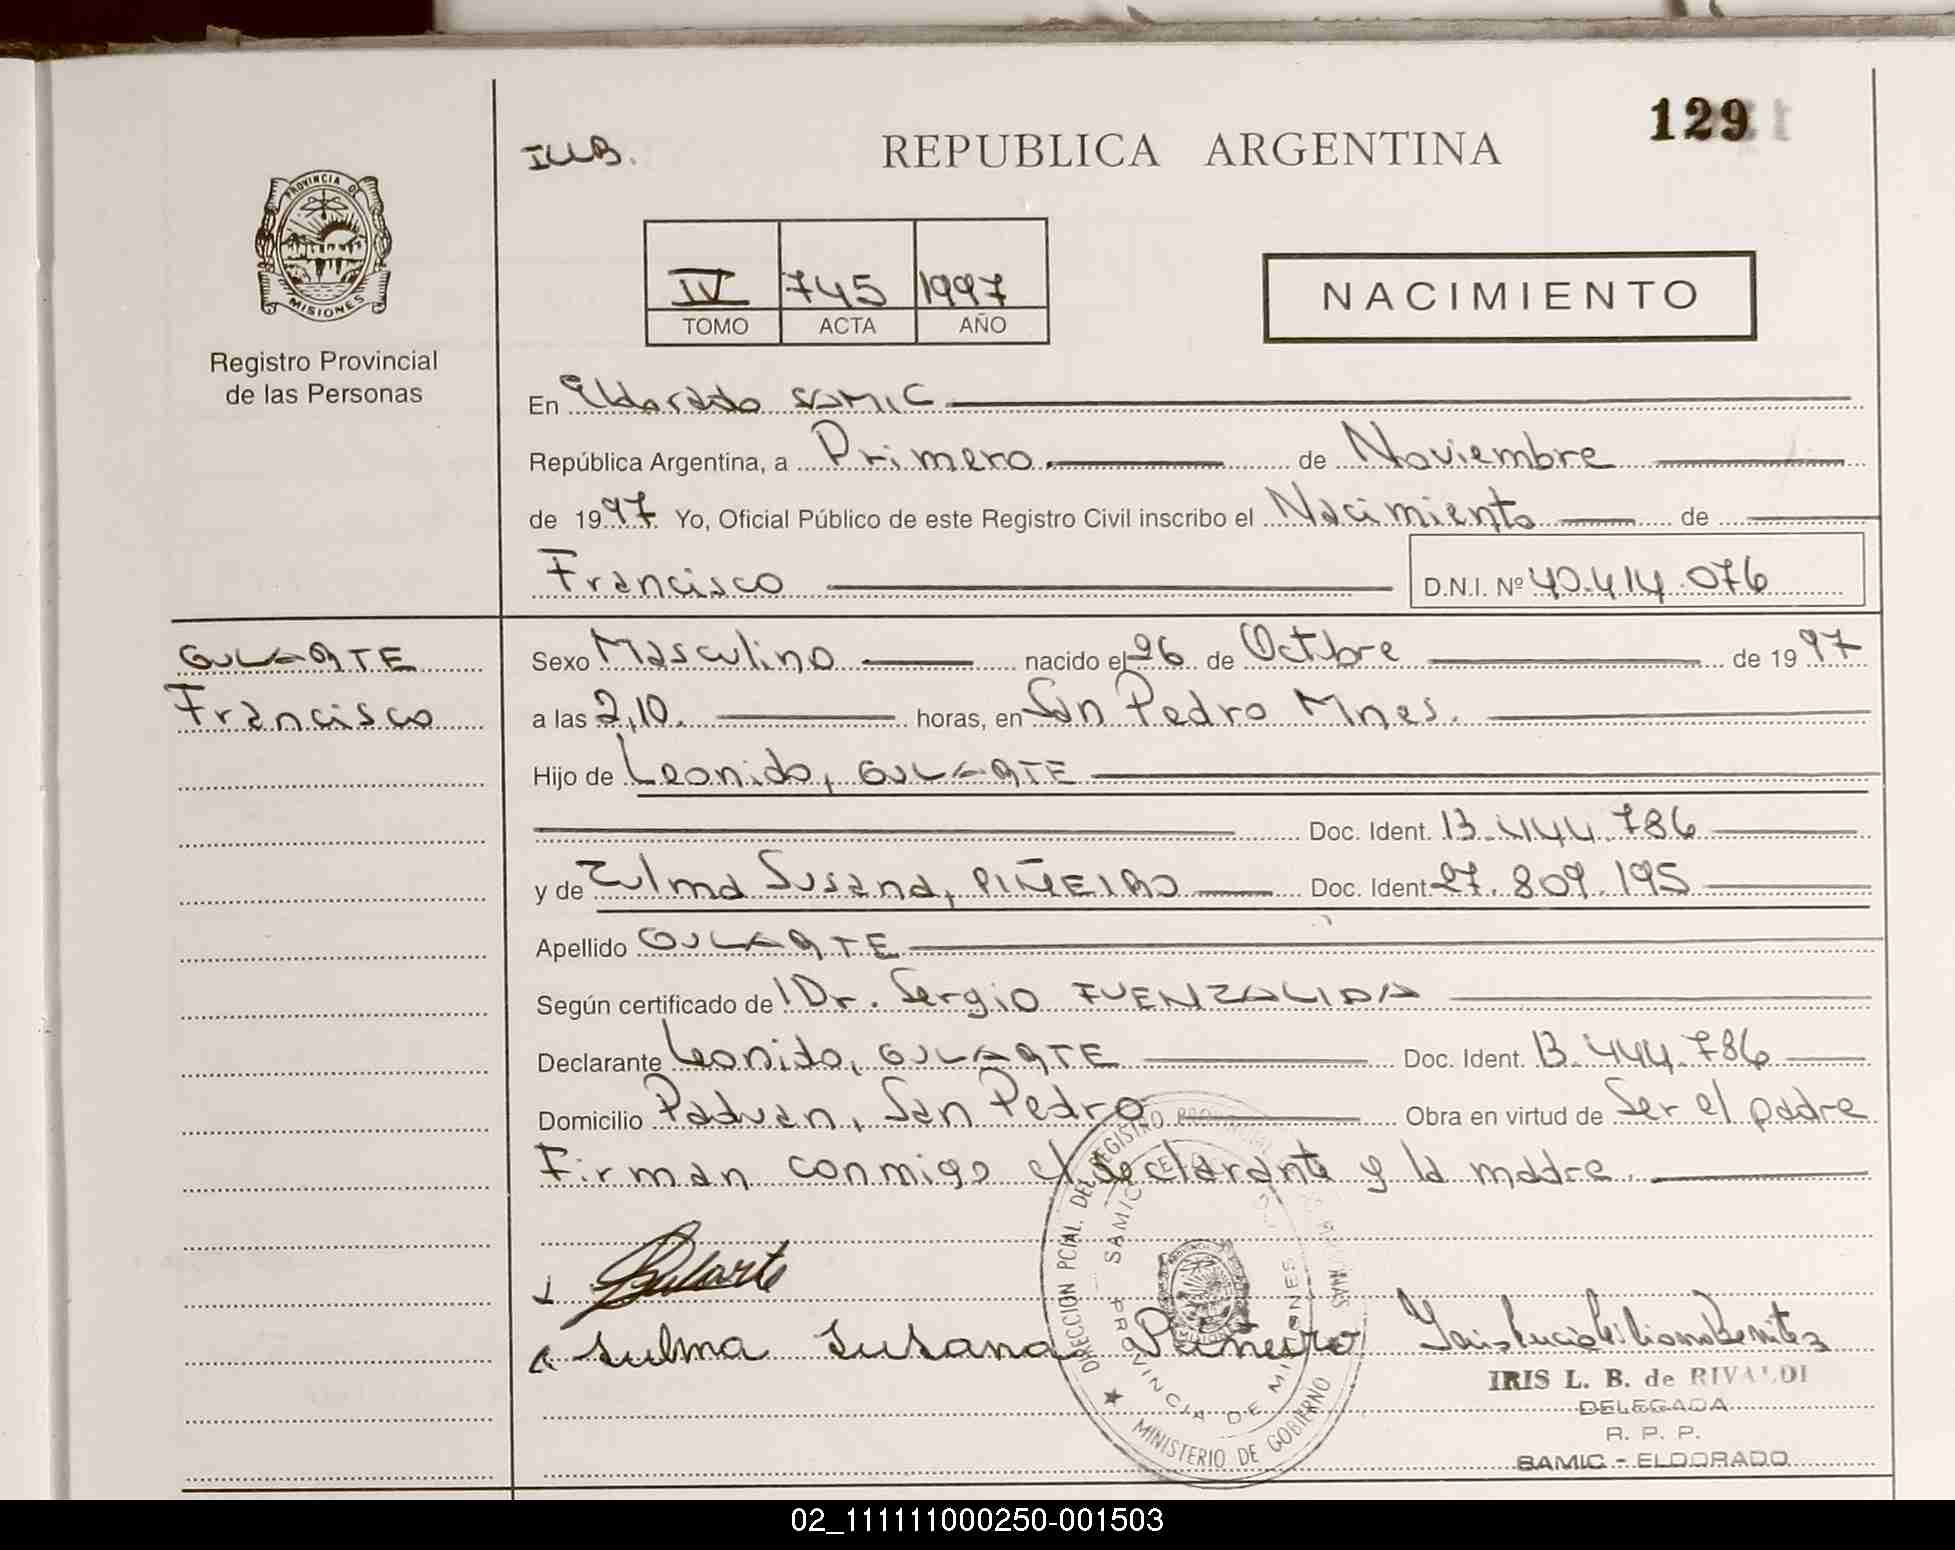 129
I.L.B.
REPUBLICA ARGENTINA
PROVINCIA DE
MISIONES
Registro Provincial
de las Personas
IV 745 1997
TOMO ACTA AÑO
NACIMIENTO
En Eldorado SAMIC
República Argentina, a Primero de Noviembre
de 1997 Yo, Oficial Público de este Registro Civil inscribo el Nacimiento de
Francisco D.N.I. Nº 40.414.076
GULARTE
Francisco
Sexo Masculino nacido el 26 de Octubre de 1997
a las 2,10. horas, en San Pedro Mnes.
Hijo de Leonido, GULARTE
Doc. Ident. 13.444.786
y de Zulma Susana, PIÑEIRO Doc. Ident. 27.809.195
Apellido GULARTE
Según certificado de Dr. Sergio FUENZALIDA
Declarante Leonido, GULARTE Doc. Ident. 13.444.786
Domicilio Paduan, San Pedro Obra en virtud de Ser el padre
Firman conmigo el declarante y la madre.
Gularte
Sulma Susana Piñeiro
IRIS L. B. de RIVALDI
DELEGADA
R. P. P.
SAMIC - ELDORADO
DIRECCION PCIAL. DEL REGISTRO PROVINCIAL
SAMIC
PROVINCIA DE MISIONES
MINISTERIO DE GOBIERNO
02_111111000250-001503